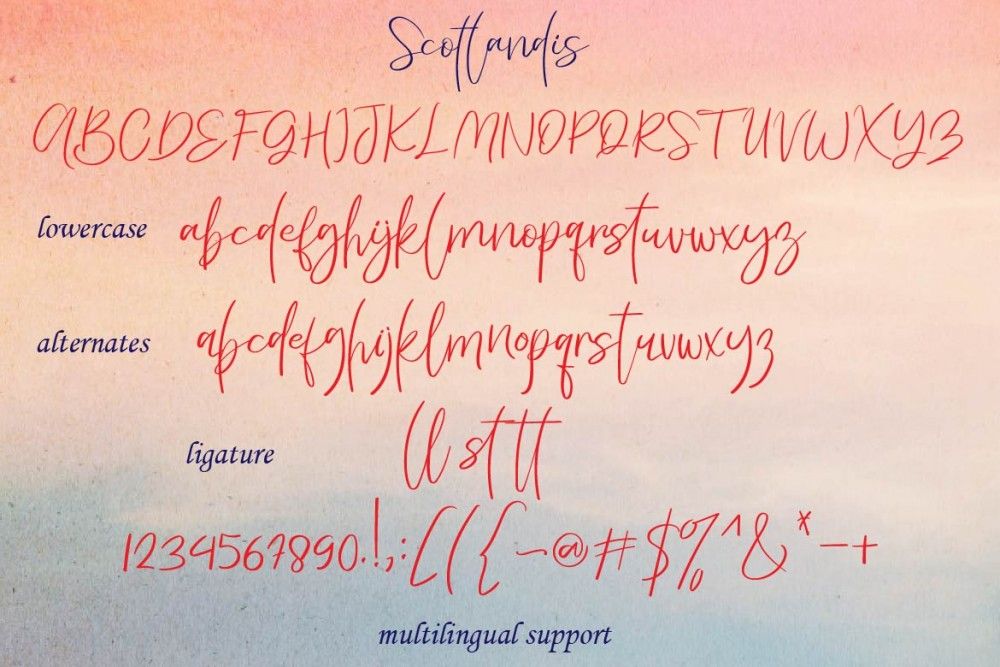 Scotlandis
ABCDEFGHIJKLMNOPQRSTUVWXYZ
lowercase abcdefghijklmnopqrstuvwxyz
alternates abcdefghijklmnopqrstuvwxyz
ligature ll st tt
1234567890.!,;:[({~-@#$%^&*-+
multilingual support